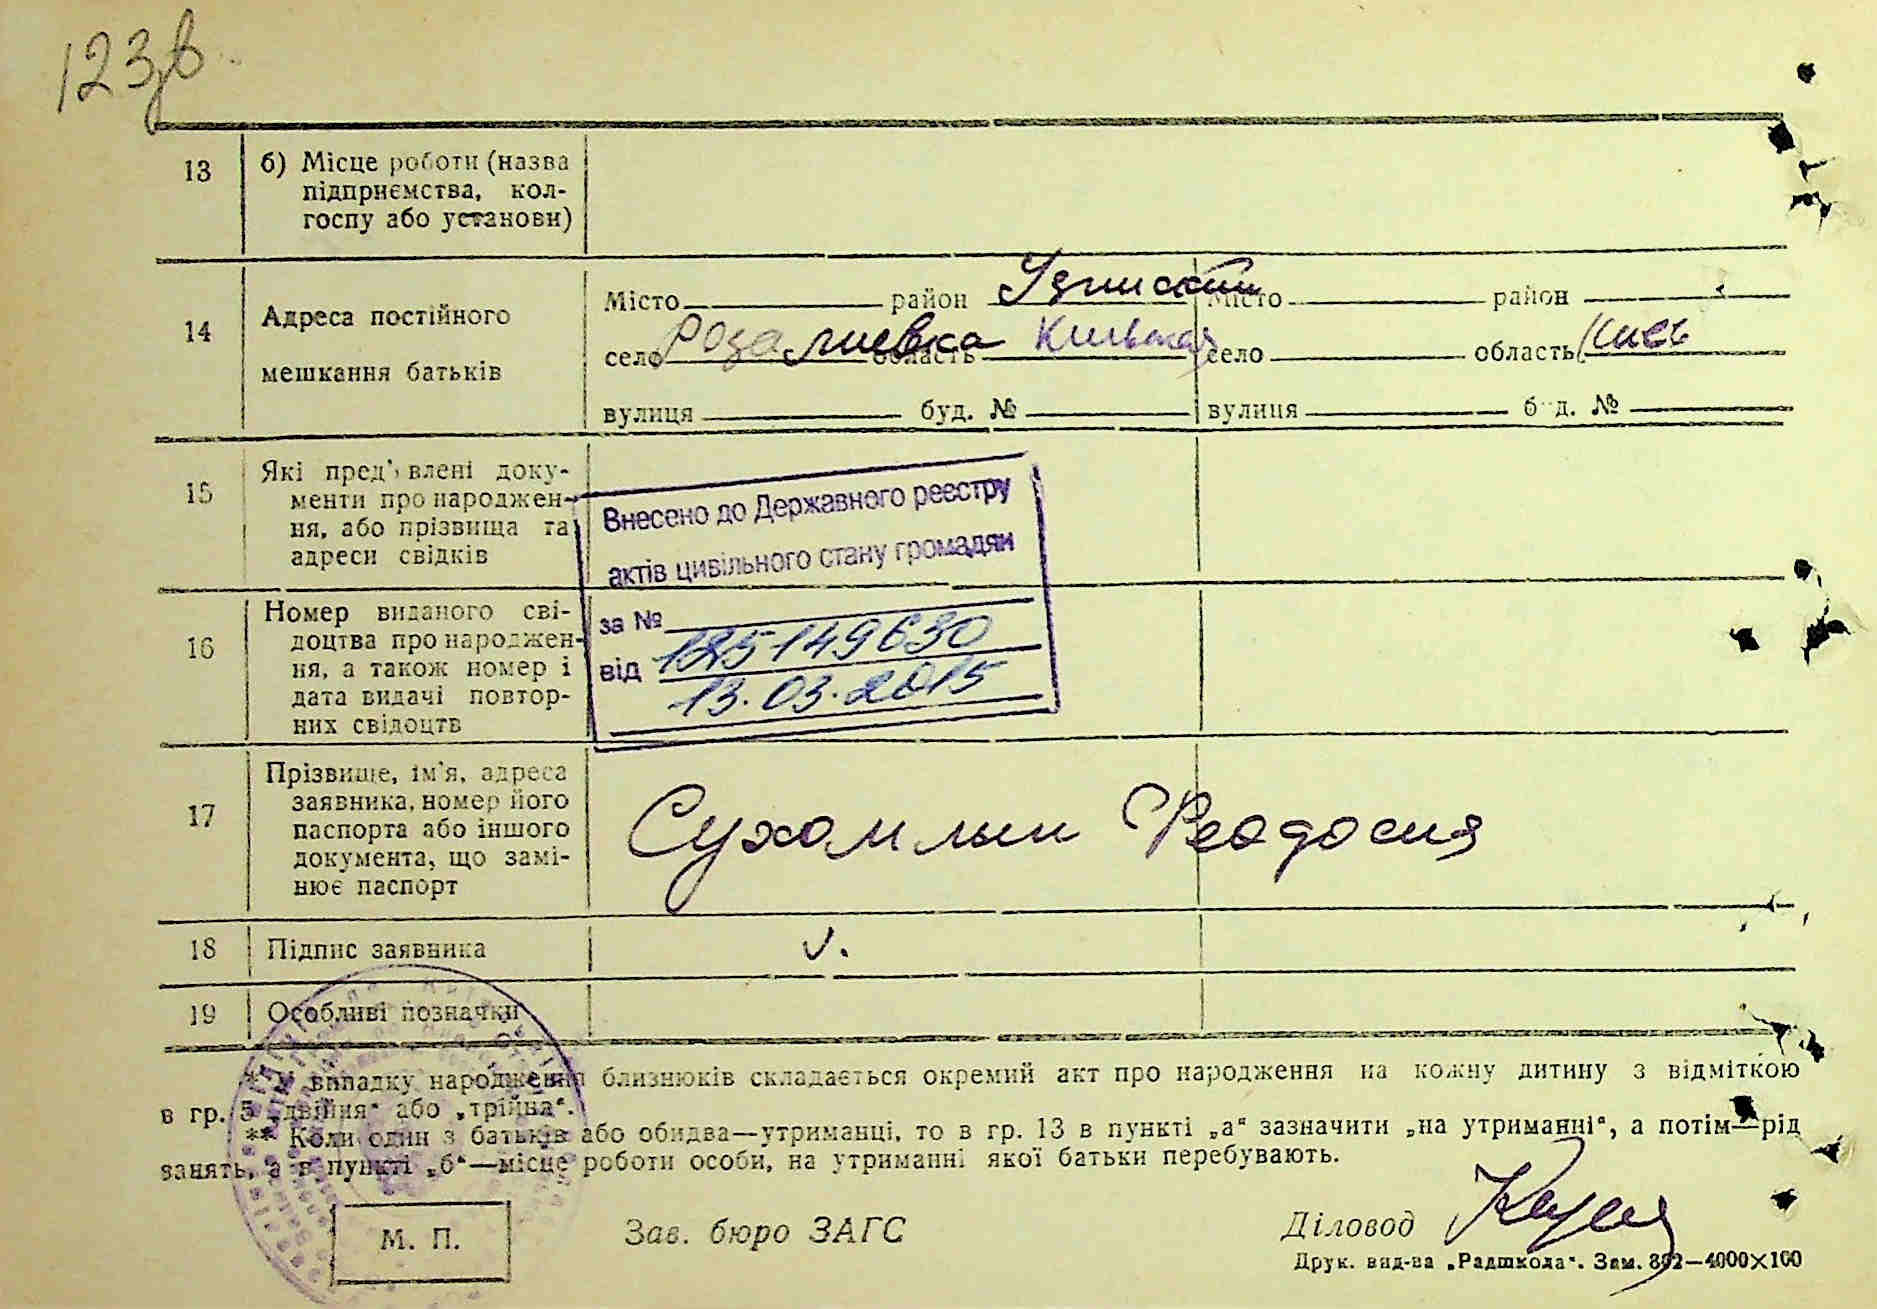 123зв.
13 б) Місце роботи (назва
підприємства, кол-
госпу або установи)
14 Адреса постійного
мешкання батьків
Місто район Узинский Місто район
село Розалиевка область Киевская село область Киев
вулиця буд. № вулиця буд. №
15 Які пред'явлені доку-
менти про народжен-
ня, або прізвища та
адреси свідків
Внесено до Державного реєстру
актів цивільного стану громадян
за №
від 125149630
13.03.2015
16 Номер виданого сві-
доцтва про народжен-
ня, а також номер і
дата видачі повтор-
них свідоцтв
17 Прізвище, ім'я, адреса
заявника, номер його
паспорта або іншого
документа, що замі-
нює паспорт
Сухомлин Феодосия
18 Підпис заявника
19 Особливі позначки
* У випадку народження близнюків складається окремий акт про народження на кожну дитину з відміткою
в гр. 5 „двійня“ або „трійня“.
** Коли один з батьків або обидва—утриманці, то в гр. 13 в пункті „а“ зазначити „на утриманні“, а потім—рід
занять, а в пункті „б“—місце роботи особи, на утриманні якої батьки перебувають.
М. П.
Зав. бюро ЗАГС
Діловод
Друк. вид-ва „Радшкола“. Зам. 892—4000×100